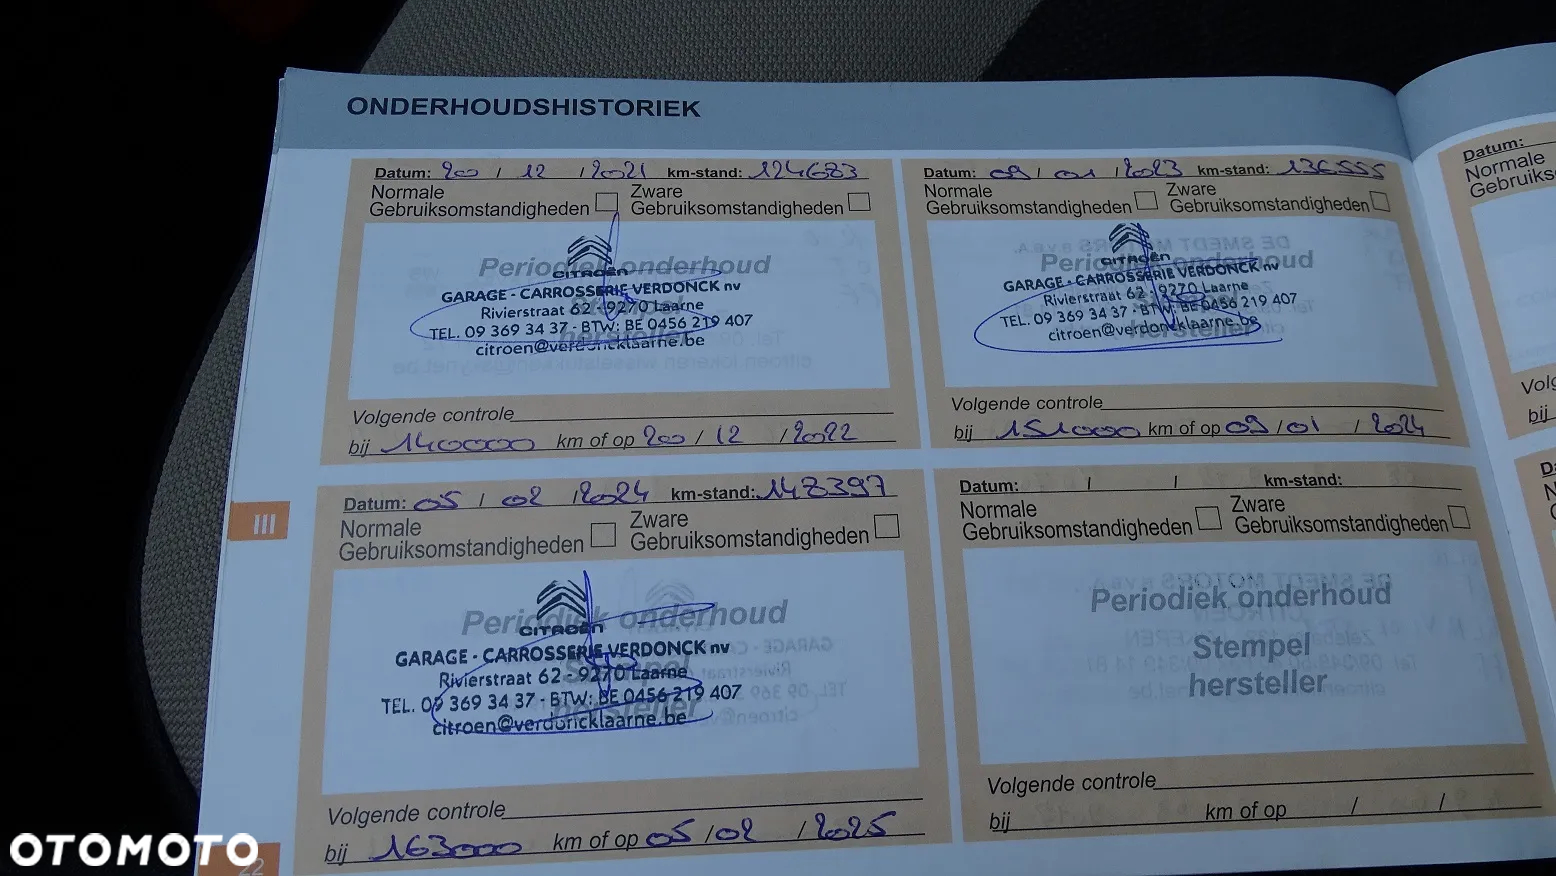 ONDERHOUDSHISTORIEK
Datum: 20 / 12 / 2021 km-stand: 124683
Normale Gebruiksomstandigheden
Zware Gebruiksomstandigheden
Periodiek onderhoud
CITROËN
GARAGE - CARROSSERIE VERDONCK nv
Rivierstraat 62 - 9270 Laarne
TEL. 09 369 34 37 - BTW: BE 0456 219 407
hersteller
citroen@verdoncklaarne.be
Volgende controle
bij 140000 km of op 20 / 12 / 2022
Datum: 09 / 01 / 2023 km-stand: 136555
Normale Gebruiksomstandigheden
Zware Gebruiksomstandigheden
Periodiek onderhoud
CITROËN
GARAGE - CARROSSERIE VERDONCK nv
Rivierstraat 62 - 9270 Laarne
TEL. 09 369 34 37 - BTW: BE 0456 219 407
hersteller
citroen@verdoncklaarne.be
Volgende controle
bij 151000 km of op 09 / 01 / 2024
III
Datum: 05 / 02 / 2024 km-stand: 148397
Normale Gebruiksomstandigheden
Zware Gebruiksomstandigheden
Periodiek onderhoud
CITROËN
GARAGE - CARROSSERIE VERDONCK nv
Stempel
Rivierstraat 62 - 9270 Laarne
TEL. 09 369 34 37 - BTW: BE 0456 219 407
hersteller
citroen@verdoncklaarne.be
Volgende controle
bij 163000 km of op 05 / 02 / 2025
Datum: / / km-stand:
Normale Gebruiksomstandigheden
Zware Gebruiksomstandigheden
Periodiek onderhoud
Stempel
hersteller
Volgende controle
bij km of op / /
Datum:
Normale
Volg
bij
OTOMOTO
22